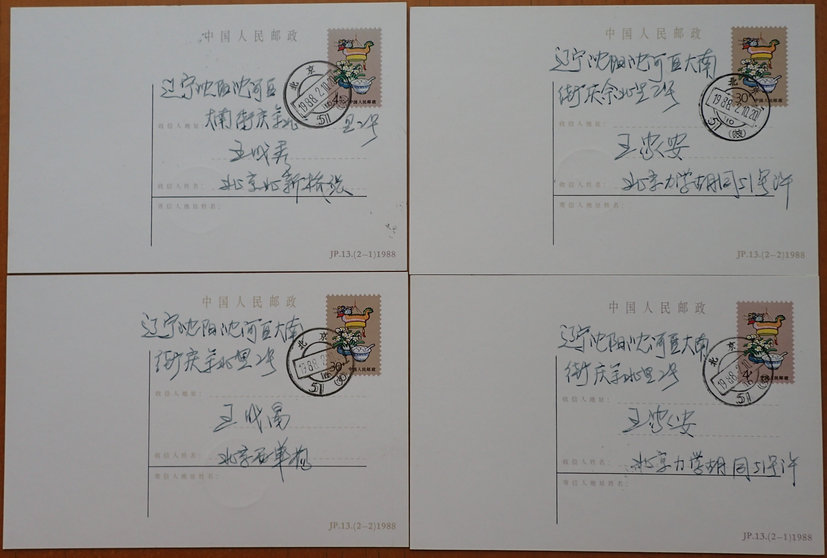 中国人民邮政
中国人民邮政
北京
1988.2.10.20
51
辽宁沈阳沈河区
大南街庆
里2号
收信人地址:
王成
收信人姓名:
北京北新桥
寄信人地址姓名:
JP.13.(2-1)1988
中国人民邮政
中国人民邮政
北京
1988.2.10.20
51
(支)
辽宁沈阳沈河区大南
街庆余北里2号
收信人地址:
王安
收信人姓名:
北京力学胡同51号许
寄信人地址姓名:
JP.13.(2-2)1988
中国人民邮政
中国人民邮政
北京
1988.2.10
51
(支)
辽宁沈阳沈河区大南
街庆北里2号
收信人地址:
王成
收信人姓名:
北京西单
寄信人地址姓名:
JP.13.(2-2)1988
中国人民邮政
中国人民邮政
北京
1988.2.10
51
辽宁沈阳沈河区大南
街庆北里2号
收信人地址:
王安
收信人姓名:
北京力学胡同51号许
寄信人地址姓名:
JP.13.(2-1)1988